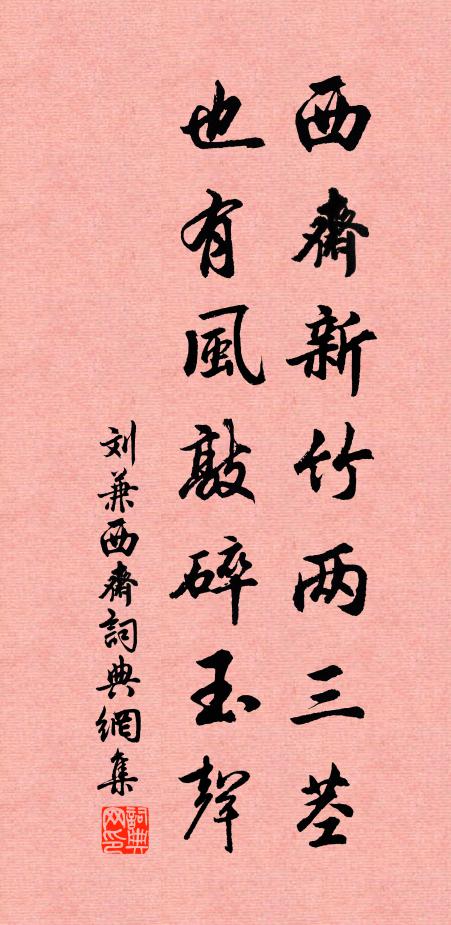 西齋新竹两三茎
也有風敲碎玉聲
刘兼西齋詞典網集
詞典网印